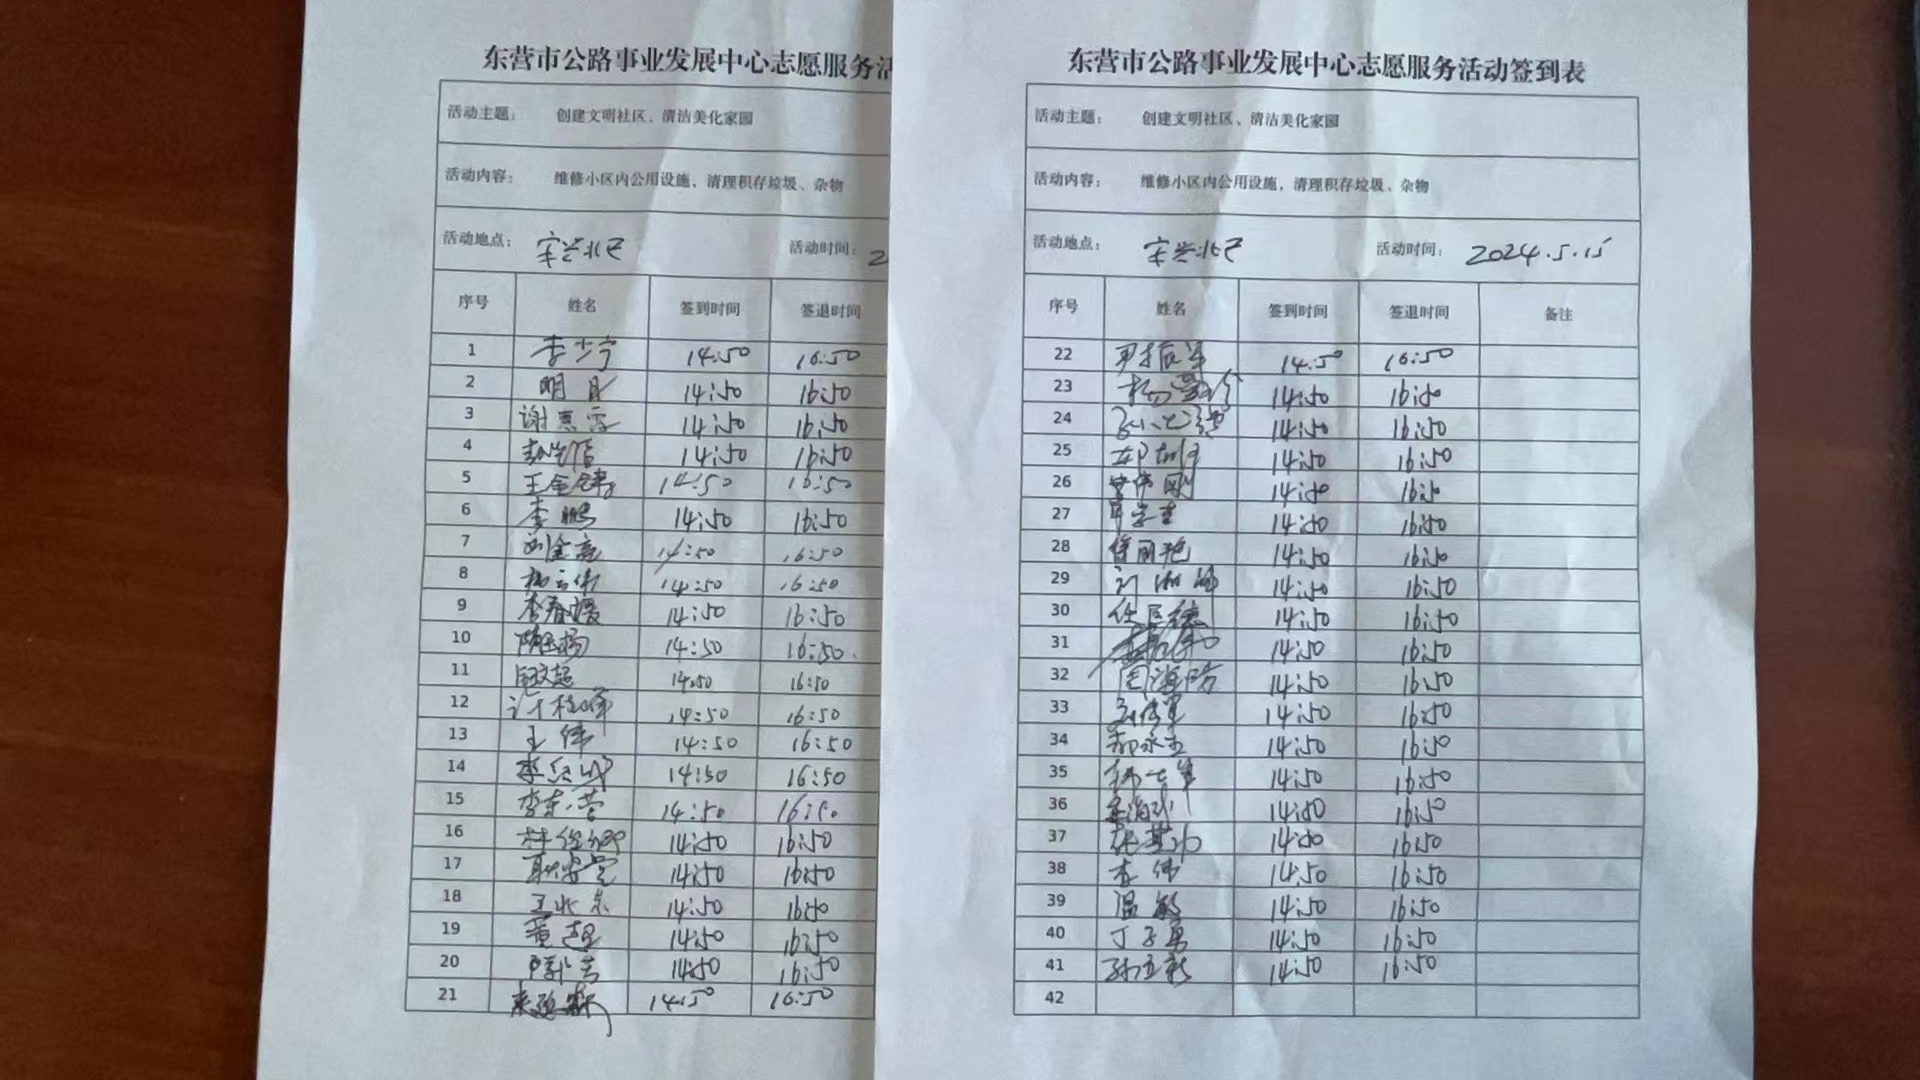 东营市公路事业发展中心志愿服务活
活动主题： 创建文明社区、清洁美化家园
活动内容： 维修小区内公用设施，清理积存垃圾、杂物
活动地点： 活动时间： 2
序号 姓名 签到时间 签退时间
1 李少宁 14:50 16:50
2 明月 14:50 16:50
3 谢惠 14:50 16:50
4 14:50 16:50
5 王金 14:50 16:50
6 李鹏 14:50 16:50
7 刘金亮 14:50 16:50
8 杨云伟 14:50 16:50
9 李春媛 14:50 16:50
10 14:50 16:50
11 14:50 16:50
12 许 14:50 16:50
13 王伟 14:50 16:50
14 李 14:50 16:50
15 李东营 14:50 16:50
16 林 14:50 16:50
17 耿 14:50 16:50
18 王北京 14:50 16:50
19 董超 14:50 16:50
20 14:50 16:50
21 14:50 16:50
东营市公路事业发展中心志愿服务活动签到表
活动主题： 创建文明社区、清洁美化家园
活动内容： 维修小区内公用设施，清理积存垃圾、杂物
活动地点： 活动时间： 2024.5.15
序号 姓名 签到时间 签退时间 备注
22 尹振军 14:50 16:50
23 杨 14:50 16:50
24 14:50 16:50
25 14:50 16:50
26 伟刚 14:50 16:50
27 14:50 16:50
28 丽艳 14:50 16:50
29 刘湘峰 14:50 16:50
30 任 14:50 16:50
31 14:50 16:50
32 周海防 14:50 16:50
33 14:50 16:50
34 郝永 14:50 16:50
35 14:50 16:50
36 14:50 16:50
37 张 14:50 16:50
38 李伟 14:50 16:50
39 温敏 14:50 16:50
40 丁子勇 14:50 16:50
41 孙立新 14:50 16:50
42